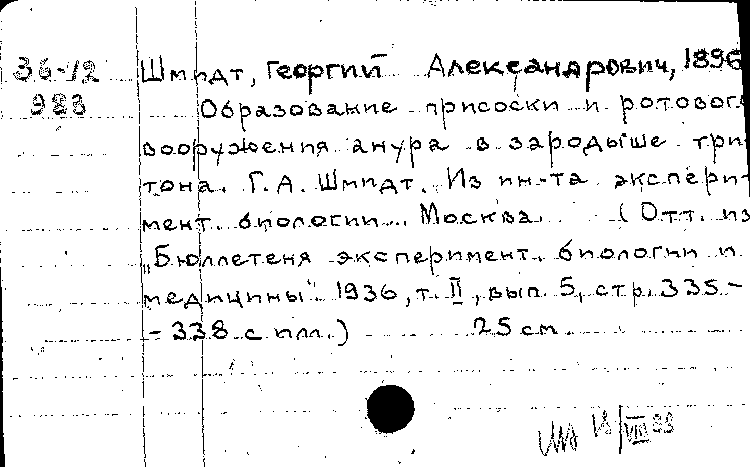 36-12 Шмидт, Георгий Александрович, 1896
983 Образование присоски и ротового
вооружения анура в зародыше три-
тона. Г. А. Шмидт. Из ин-та эксперит
мент. биологии. Москва. (Отт. из
„Бюллетеня эксперимент. биологии и
медицины" 1936, т. II, вып. 5, стр. 335-
-338 с илл.) 25 см.
18/VIII 38